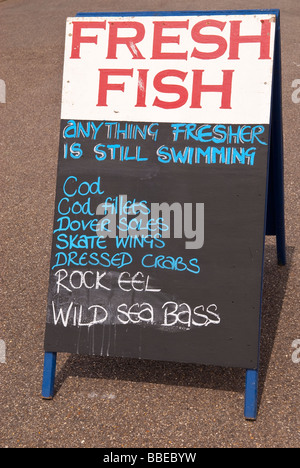 FRESH
FISH
ANYTHING FRESHER
IS STILL SWIMMING
Cod
Cod fillets
DOVER SOLES
SKATE WINGS
DRESSED CRABS
ROCK EEL
WILD SEA BASS
alamy
Image ID: BBEBYW
www.alamy.com